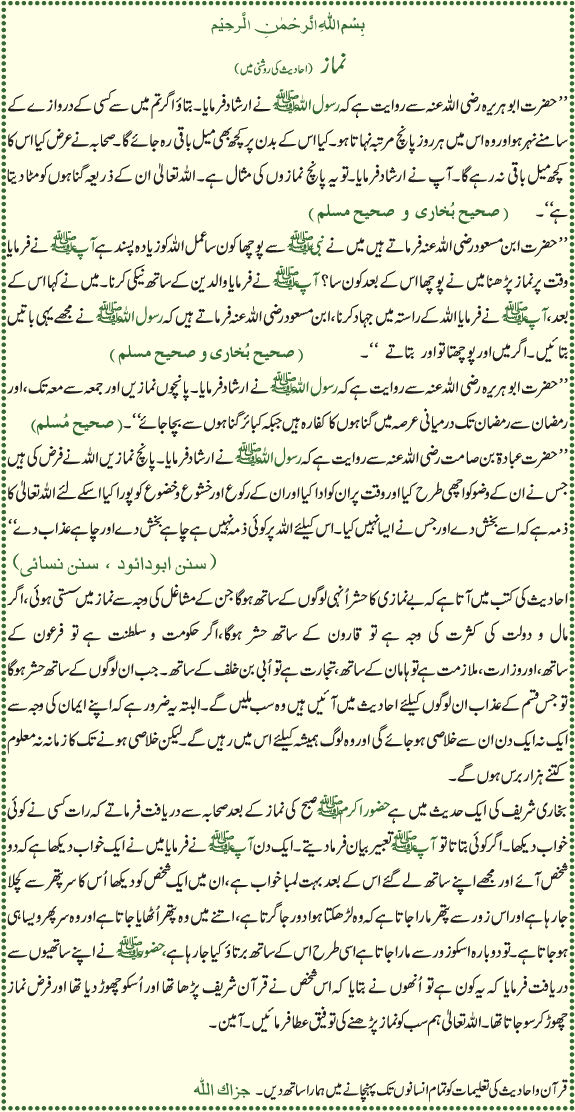 بسم الله الرحمٰن الرحیم
نماز (احادیث کی روشنی میں)
’’حضرت ابوہریرہ رضی اللہ عنہ سے روایت ہے کہ رسول اللہ ﷺ نے ارشاد فرمایا۔ بتاؤ اگر تم میں سے کسی کے دروازے کے
سامنے نہر ہو اور وہ اس میں ہر روز پانچ مرتبہ نہاتا ہو۔ کیا اس کے بدن پر کچھ بھی میل باقی رہ جائے گا۔ صحابہ نے عرض کیا اس کا
کچھ میل باقی نہ رہے گا۔ آپ نے ارشاد فرمایا۔ تو یہ پانچ نمازوں کی مثال ہے۔ اللہ تعالیٰ ان کے ذریعہ گناہوں کو مٹا دیتا
ہے‘‘۔ (صحیح بُخاری و صحیح مسلم)
’’حضرت ابن مسعود رضی اللہ عنہ فرماتے ہیں میں نے نبی ﷺ سے پوچھا کون سا عمل اللہ کو زیادہ پسند ہے آپ ﷺ نے فرمایا
وقت پر نماز پڑھنا میں نے پوچھا اس کے بعد کون سا؟ آپ ﷺ نے فرمایا والدین کے ساتھ نیکی کرنا۔ میں نے کہا اس کے
بعد، آپ ﷺ نے فرمایا اللہ کے راستہ میں جہاد کرنا، ابن مسعود رضی اللہ عنہ فرماتے ہیں کہ رسول اللہ ﷺ نے مجھے یہی باتیں
بتائیں۔ اگر میں اور پوچھتا تو اور بتاتے ‘‘۔ (صحیح بُخاری و صحیح مسلم)
’’حضرت ابوہریرہ رضی اللہ عنہ سے روایت ہے کہ رسول اللہ ﷺ نے ارشاد فرمایا۔ پانچوں نمازیں اور جمعہ سے جمعہ تک، اور
رمضان سے رمضان تک درمیانی عرصہ میں گناہوں کا کفارہ ہیں جبکہ کبائر گناہوں سے بچا جائے‘‘۔ (صحیح مُسلم)
’’حضرت عبادۃ بن صامت رضی اللہ عنہ سے روایت ہے کہ رسول اللہ ﷺ نے ارشاد فرمایا۔ پانچ نمازیں اللہ نے فرض کی ہیں
جس نے ان کے وضو کو اچھی طرح کیا اور وقت پر ان کو ادا کیا اور ان کے رکوع اور خشوع و خضوع کو پورا کیا اسکے لئے اللہ تعالیٰ کا
ذمہ ہے کہ اسے بخش دے اور جس نے ایسا نہیں کیا۔ اس کیلئے اللہ پر کوئی ذمہ نہیں ہے چاہے بخش دے اور چاہے عذاب دے‘‘
(سنن ابودائود ، سنن نسائی)
احادیث کی کتب میں آتا ہے کہ بے نمازی کا حشر اُنہی لوگوں کے ساتھ ہوگا جن کے مشاغل کی وجہ سے نماز میں سستی ہوئی، اگر
مال و دولت کی کثرت کی وجہ ہے تو قارون کے ساتھ حشر ہوگا، اگر حکومت و سلطنت ہے تو فرعون کے
ساتھ، اور وزارت، ملازمت ہے تو ہامان کے ساتھ، تجارت ہے تو اُبی بن خلف کے ساتھ۔ جب ان لوگوں کے ساتھ حشر ہوگا
تو جس قسم کے عذاب ان لوگوں کیلئے احادیث میں آئیں ہیں وہ سب ملیں گے۔ البتہ یہ ضرور ہے کہ اپنے ایمان کی وجہ سے
ایک نہ ایک دن ان سے خلاصی ہو جائے گی اور وہ لوگ ہمیشہ کیلئے اس میں رہیں گے۔ لیکن خلاصی ہونے تک کا زمانہ نہ معلوم
کتنے ہزار برس ہوں گے۔
بخاری شریف کی ایک حدیث میں ہے حضور اکرم ﷺ صبح کی نماز کے بعد صحابہ سے دریافت فرماتے کہ رات کسی نے کوئی
خواب دیکھا۔ اگر کوئی بتاتا تو آپ ﷺ تعبیر بیان فرما دیتے۔ ایک دن آپ ﷺ نے فرمایا میں نے ایک خواب دیکھا ہے کہ دو
شخص آئے اور مجھے اپنے ساتھ لے گئے اس کے بعد بہت لمبا خواب ہے، ان میں ایک شخص کو دیکھا اُس کا سر پتھر سے کچلا
جا رہا ہے اور اس زور سے پتھر مارا جاتا ہے کہ وہ لڑھکتا ہوا دور جا گرتا ہے، اتنے میں وہ پتھر اُٹھایا جاتا ہے اور وہ سر پھر ویسا ہی
ہو جاتا ہے۔ تو دوبارہ اسکو زور سے مارا جاتا ہے اسی طرح اس کے ساتھ برتاؤ کیا جا رہا ہے، حضور ﷺ نے اپنے ساتھیوں سے
دریافت فرمایا کہ یہ کون ہے تو اُنھوں نے بتایا کہ اس شخص نے قرآن شریف پڑھا تھا اور اُسکو چھوڑ دیا تھا اور فرض نماز
چھوڑ کر سو جاتا تھا۔ اللہ تعالیٰ ہم سب کو نماز پڑھنے کی توفیق عطا فرمائیں۔ آمین۔
قرآن و احادیث کی تعلیمات کو تمام انسانوں تک پہنچانے میں ہمارا ساتھ دیں۔ جزاك الله